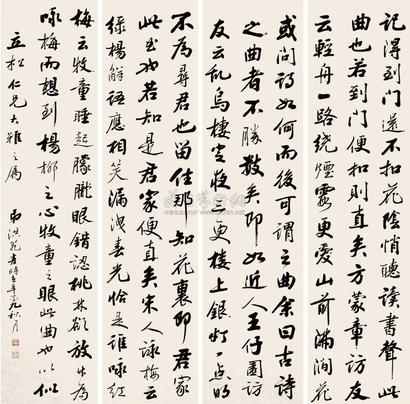 記得到門還不扣花陰悄聽讀書聲此
曲也若到門便扣則直矣方蒙章訪友
云輕舟一路繞煙靄更愛山前滿澗花
或問詩如何而後可謂之曲余曰古詩
之曲者不勝數矣即如近人王仔園訪
友云乱烏棲定夜三更樓上銀灯一点明
不為尋君也留住那知花裏即君家
此曲也若知是君家便直矣宋人詠梅云
綠楊解語應相笑漏洩春光恰是誰咏紅
梅云牧童睡起朦朧眼錯認桃林欲放牛為
咏梅而想到楊柳之心牧童之眼此曲也以似
立松仁兄大雅之屬
弟洪範書時年 秋月